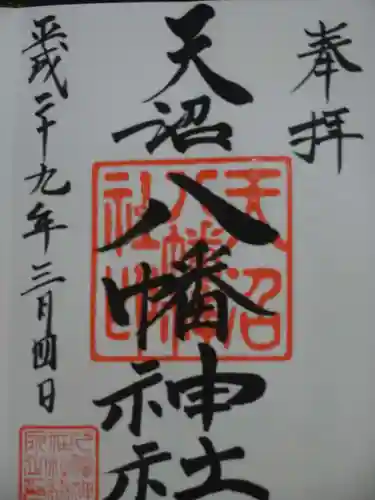 奉拝
天沼八幡神社
天沼八幡社印
平成二十九年三月四日